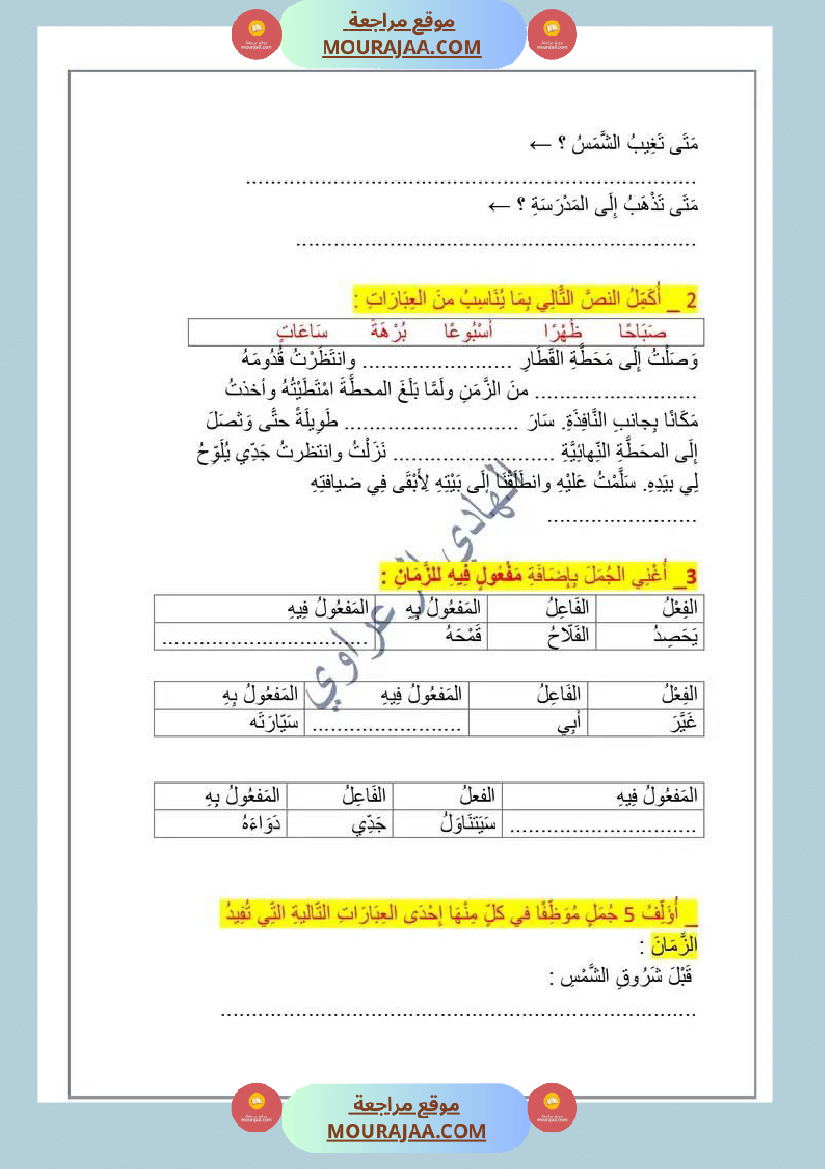 موقع مراجعة
MOURAJAA.COM
مَتَى تَغِيبُ الشَّمَسُ ؟ ←
.........................................................................
مَتَى تَذْهَبُ إِلَى المَدْرَسَةِ ؟ ←
................................................................
2 _ أُكَمِّلُ النصَّ التَّالِي بِمَا يُنَاسِبُ منَ العِبَارَاتِ :
صَبَاحًا ظُهْرًا أسْبُوعًا بُرْهَةً سَاعَاتٍ
وَصَلْتُ إِلَى مَحَطَّةِ القَّطَارِ ........................ وانتَظَرْتُ قُدُومَهُ
.......................... منَ الزَّمَنِ ولَمَّا بَلَغَ المحطَّةَ امْتَطَيْتُهُ وأخذتُ
مَكَانًا بِجانبِ النَّافِذَةِ. سَارَ ............................ طَوِيلَةً حتَّى وَصَلَ
إِلَى المحَطَّةِ النِّهائِيَّةِ .......................... نَزَلْتُ وانتظرتُ جَدِّي يُلَوِّحُ
لِي بيَدِهِ. سَلَّمْتُ عَلَيْهِ وانطَلَقْنَا إلَى بَيْتِهِ لِأَبْقَى فِي ضيافتِهِ
........................
3_ أُغْنِي الجُمَلَ بِإِضَافَةِ مَفْعُولٍ فِيهِ للزَّمَانِ :
الفِعْلُ الفَاعِلُ المَفعُولُ بِهِ المَفعُولُ فِيهِ
يَحَصِدُ الفَلّاحُ قَمْحَهُ .................................
الفِعْلُ الفَاعِلُ المَفعُولُ فِيهِ المَفعُولُ بِهِ
غَيَّرَ أبِي ........................ سَيّارَتَه
المَفعُولُ فِيهِ الفعلُ الفَاعِلُ المَفعُولُ بِهِ
.............................. سَيَتنَاوَلُ جَدِّي دَوَاءَهُ
_ أُؤَلِّفُ 5 جُمَلٍ مُوَظِّفًا في كلٍّ مِنْهَا إِحْدَى العِبَارَاتِ التّالَيةِ التَّي تُفِيدُ
الزَّمَانَ :
قَبْلَ شَرُوقِ الشَّمْسِ :
.............................................................................
موقع مراجعة
MOURAJAA.COM